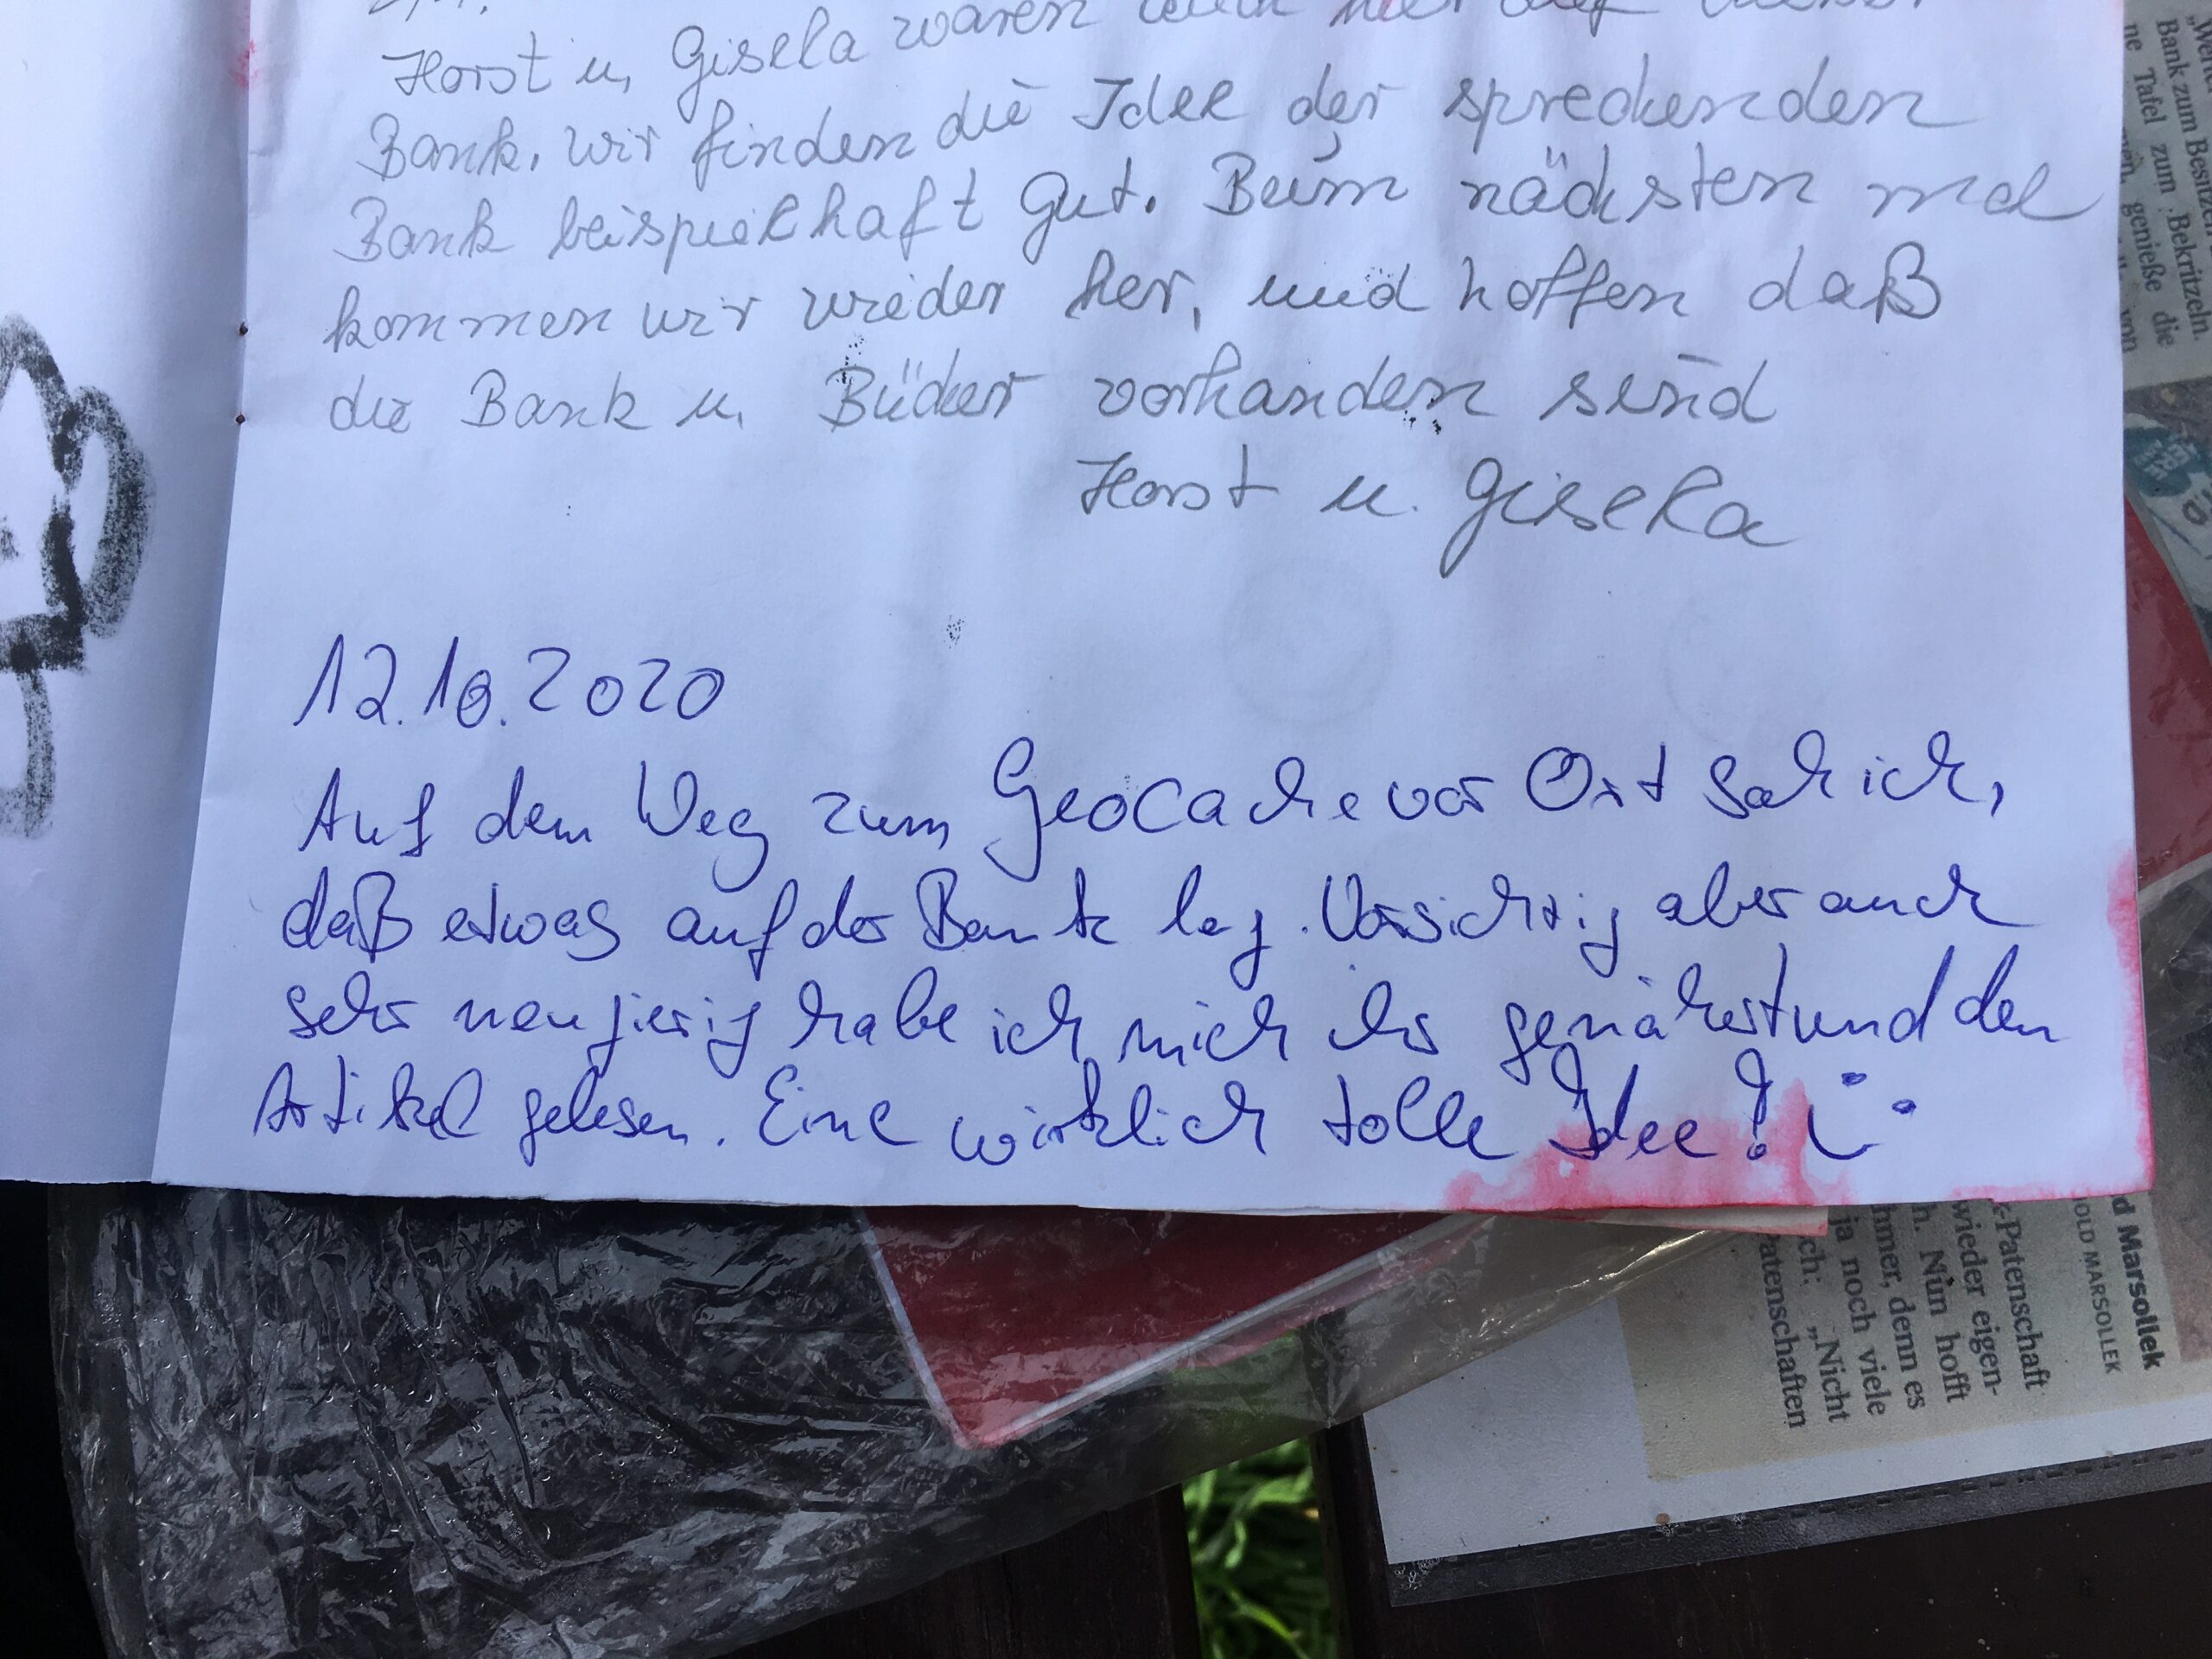 Horst u. Gisela waren auch hier auf dieser
Bank. wir finden die Idee der sprechenden
Bank beispielhaft gut. Beim nächsten mal
kommen wir wieder her, und hoffen daß
die Bank u. Bücher vorhanden sind
Horst u. Gisela
12.10.2020
Auf dem Weg zum Geocache vor Ort sah ich,
daß etwas auf der Bank lag. Vorsichtig aber auch
sehr neugierig habe ich mich ihr genähert und den
Artikel gelesen. Eine wirklich tolle Idee!
Bank zum Besin
ne Tafel zum Bekritzeln.
genieße die
von
d Marsollek
OLD MARSOLLEK
-Patenschaft
wieder eigen-
h. Nun hofft
hmer, denn es
ja noch viele
ch: „Nicht
Patenschaften